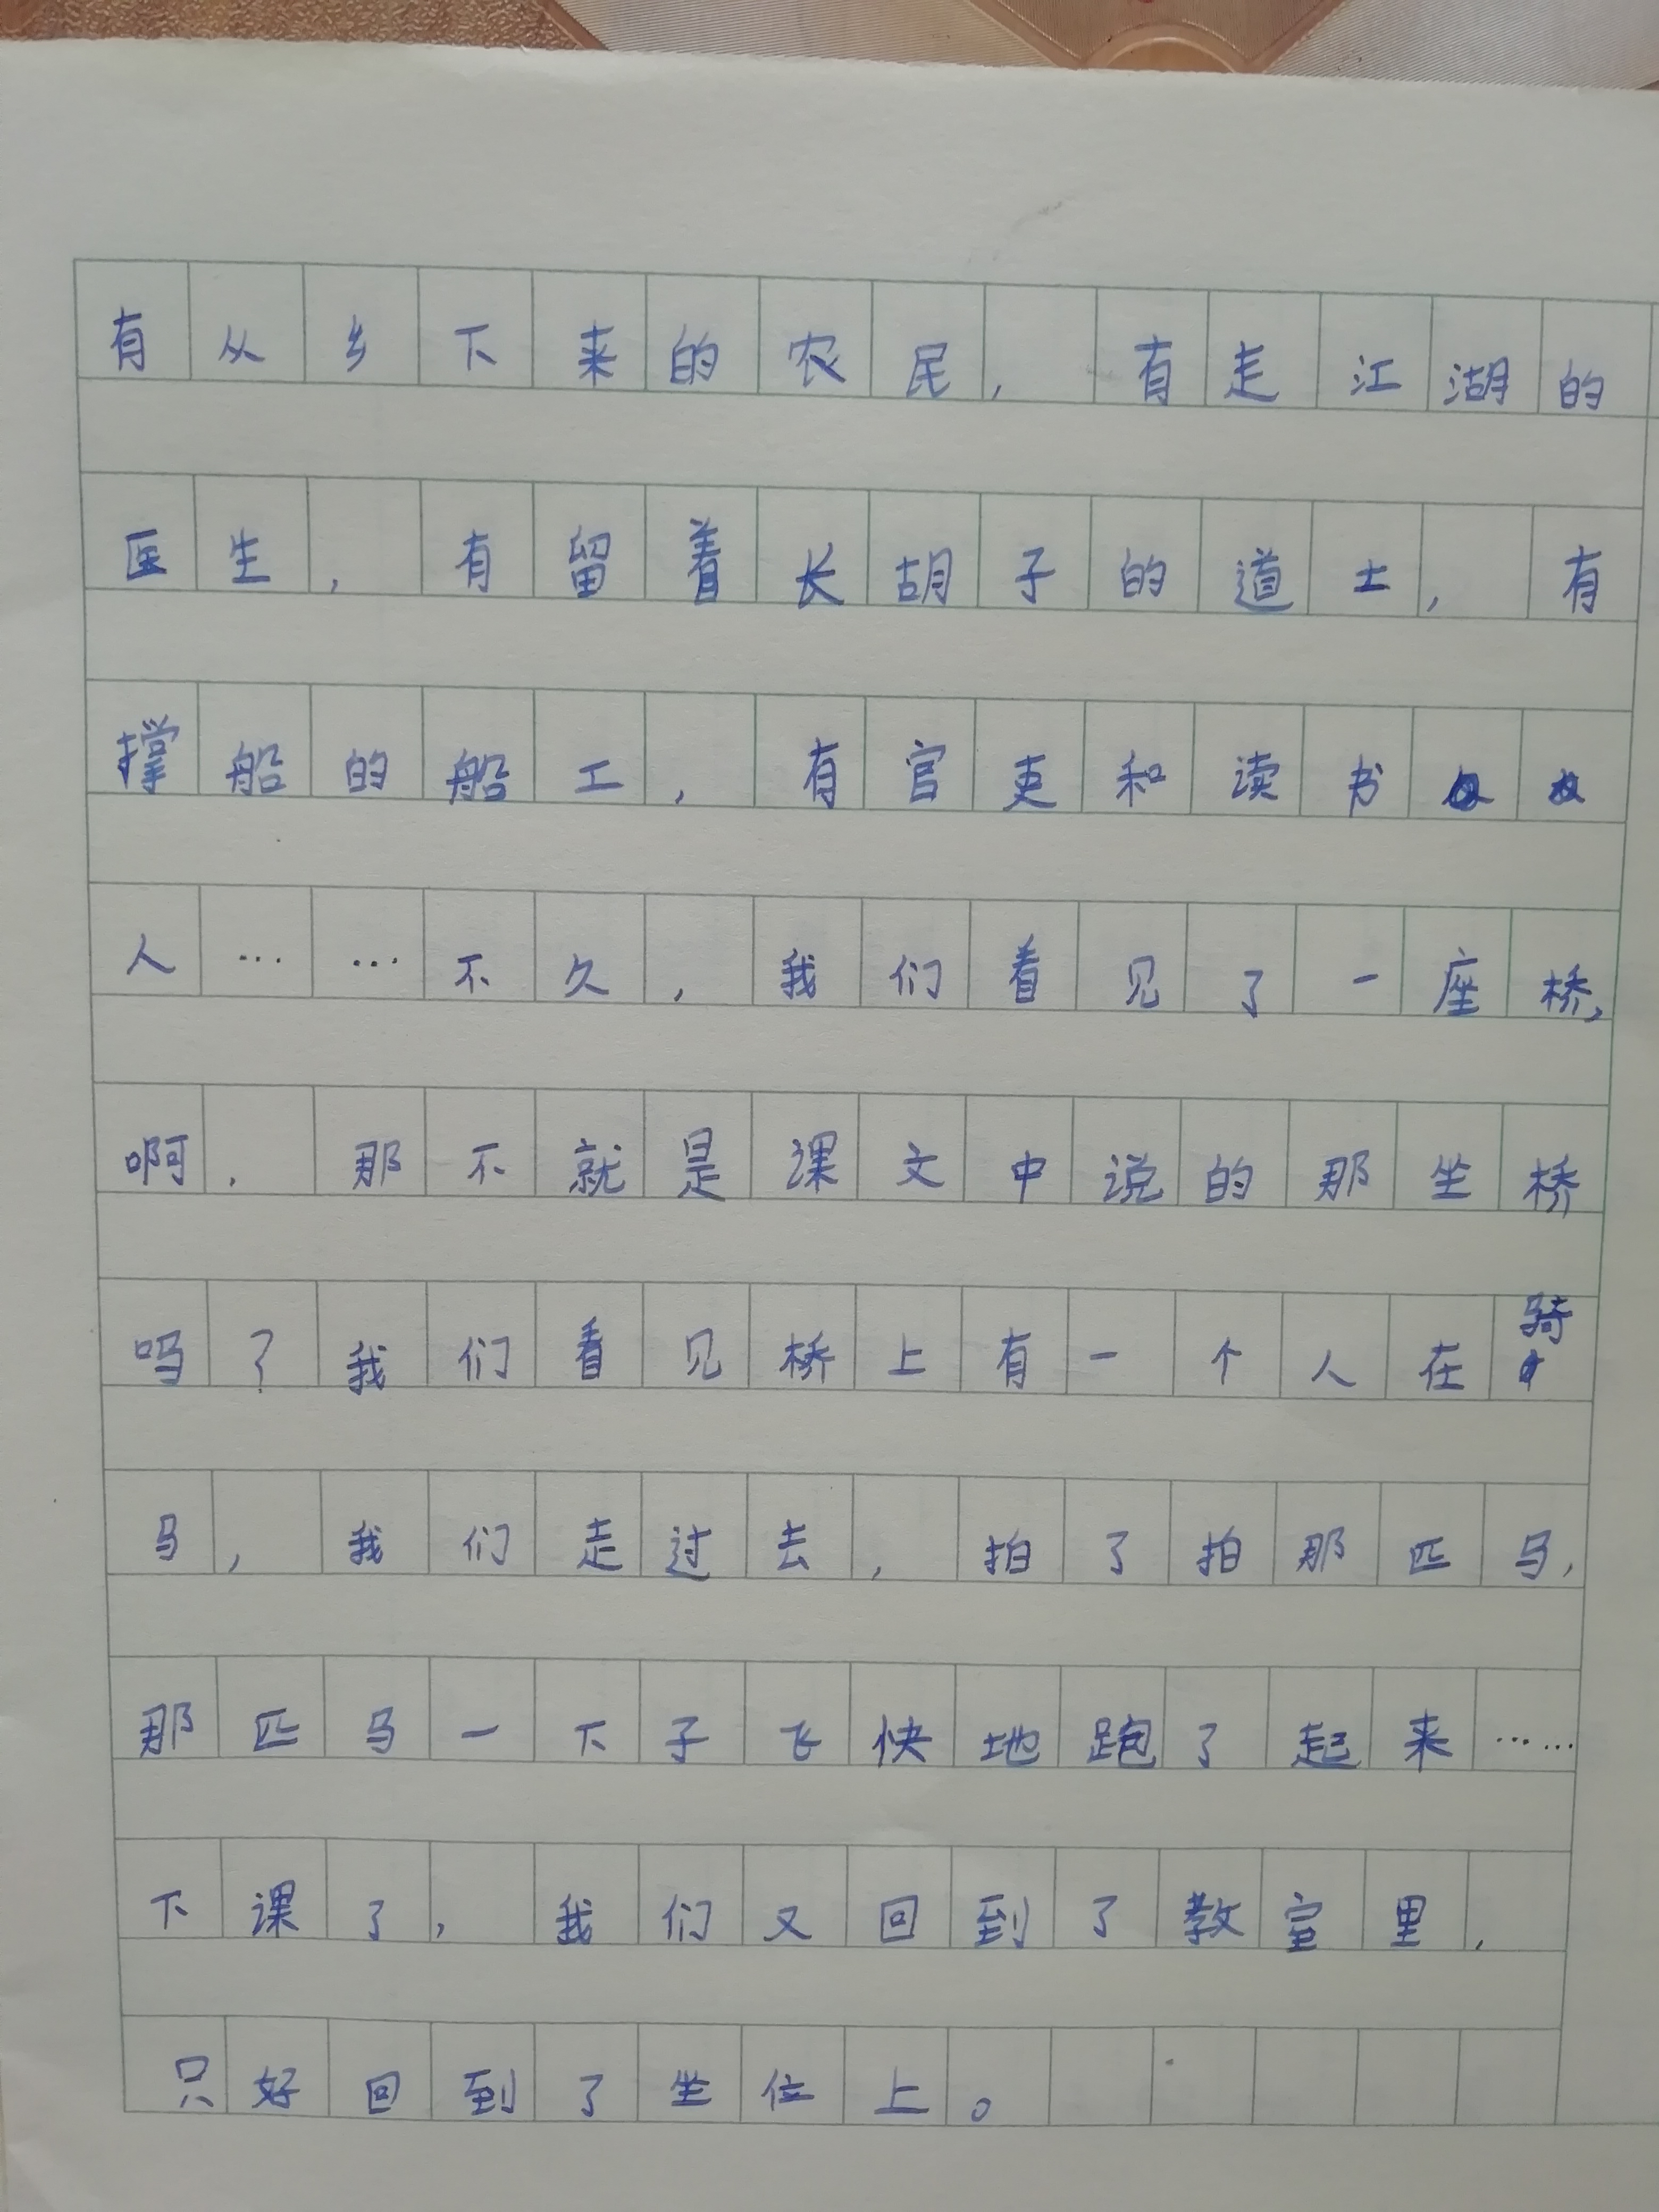 有从乡下来的农民，有走江湖的
医生，有留着长胡子的道士，有
撑船的船工，有官吏和读书
人……不久，我们看见了一座桥，
啊，那不就是课文中说的那坐桥
吗？我们看见桥上有一个人在骑
马，我们走过去，拍了拍那匹马，
那匹马一下子飞快地跑了起来……
下课了，我们又回到了教室里，
只好回到了坐位上。